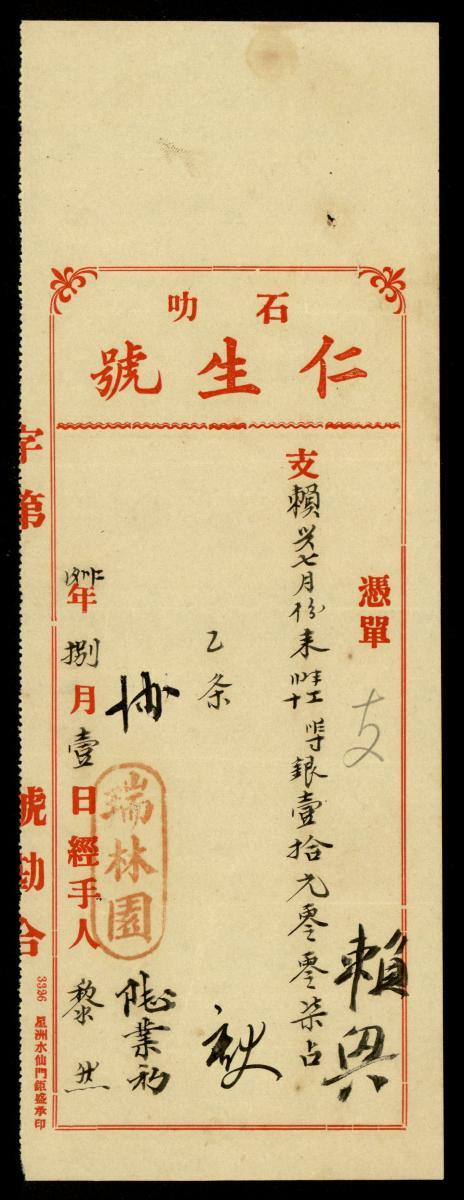 石叻
仁生號
憑單
支
賴興
支賴兴七月份来
銀壹拾元零零柒占
乙条
協
瑞林園
年捌月壹日經手人黎
字第 號勘合
3336 星洲水仙門鉅盛承印